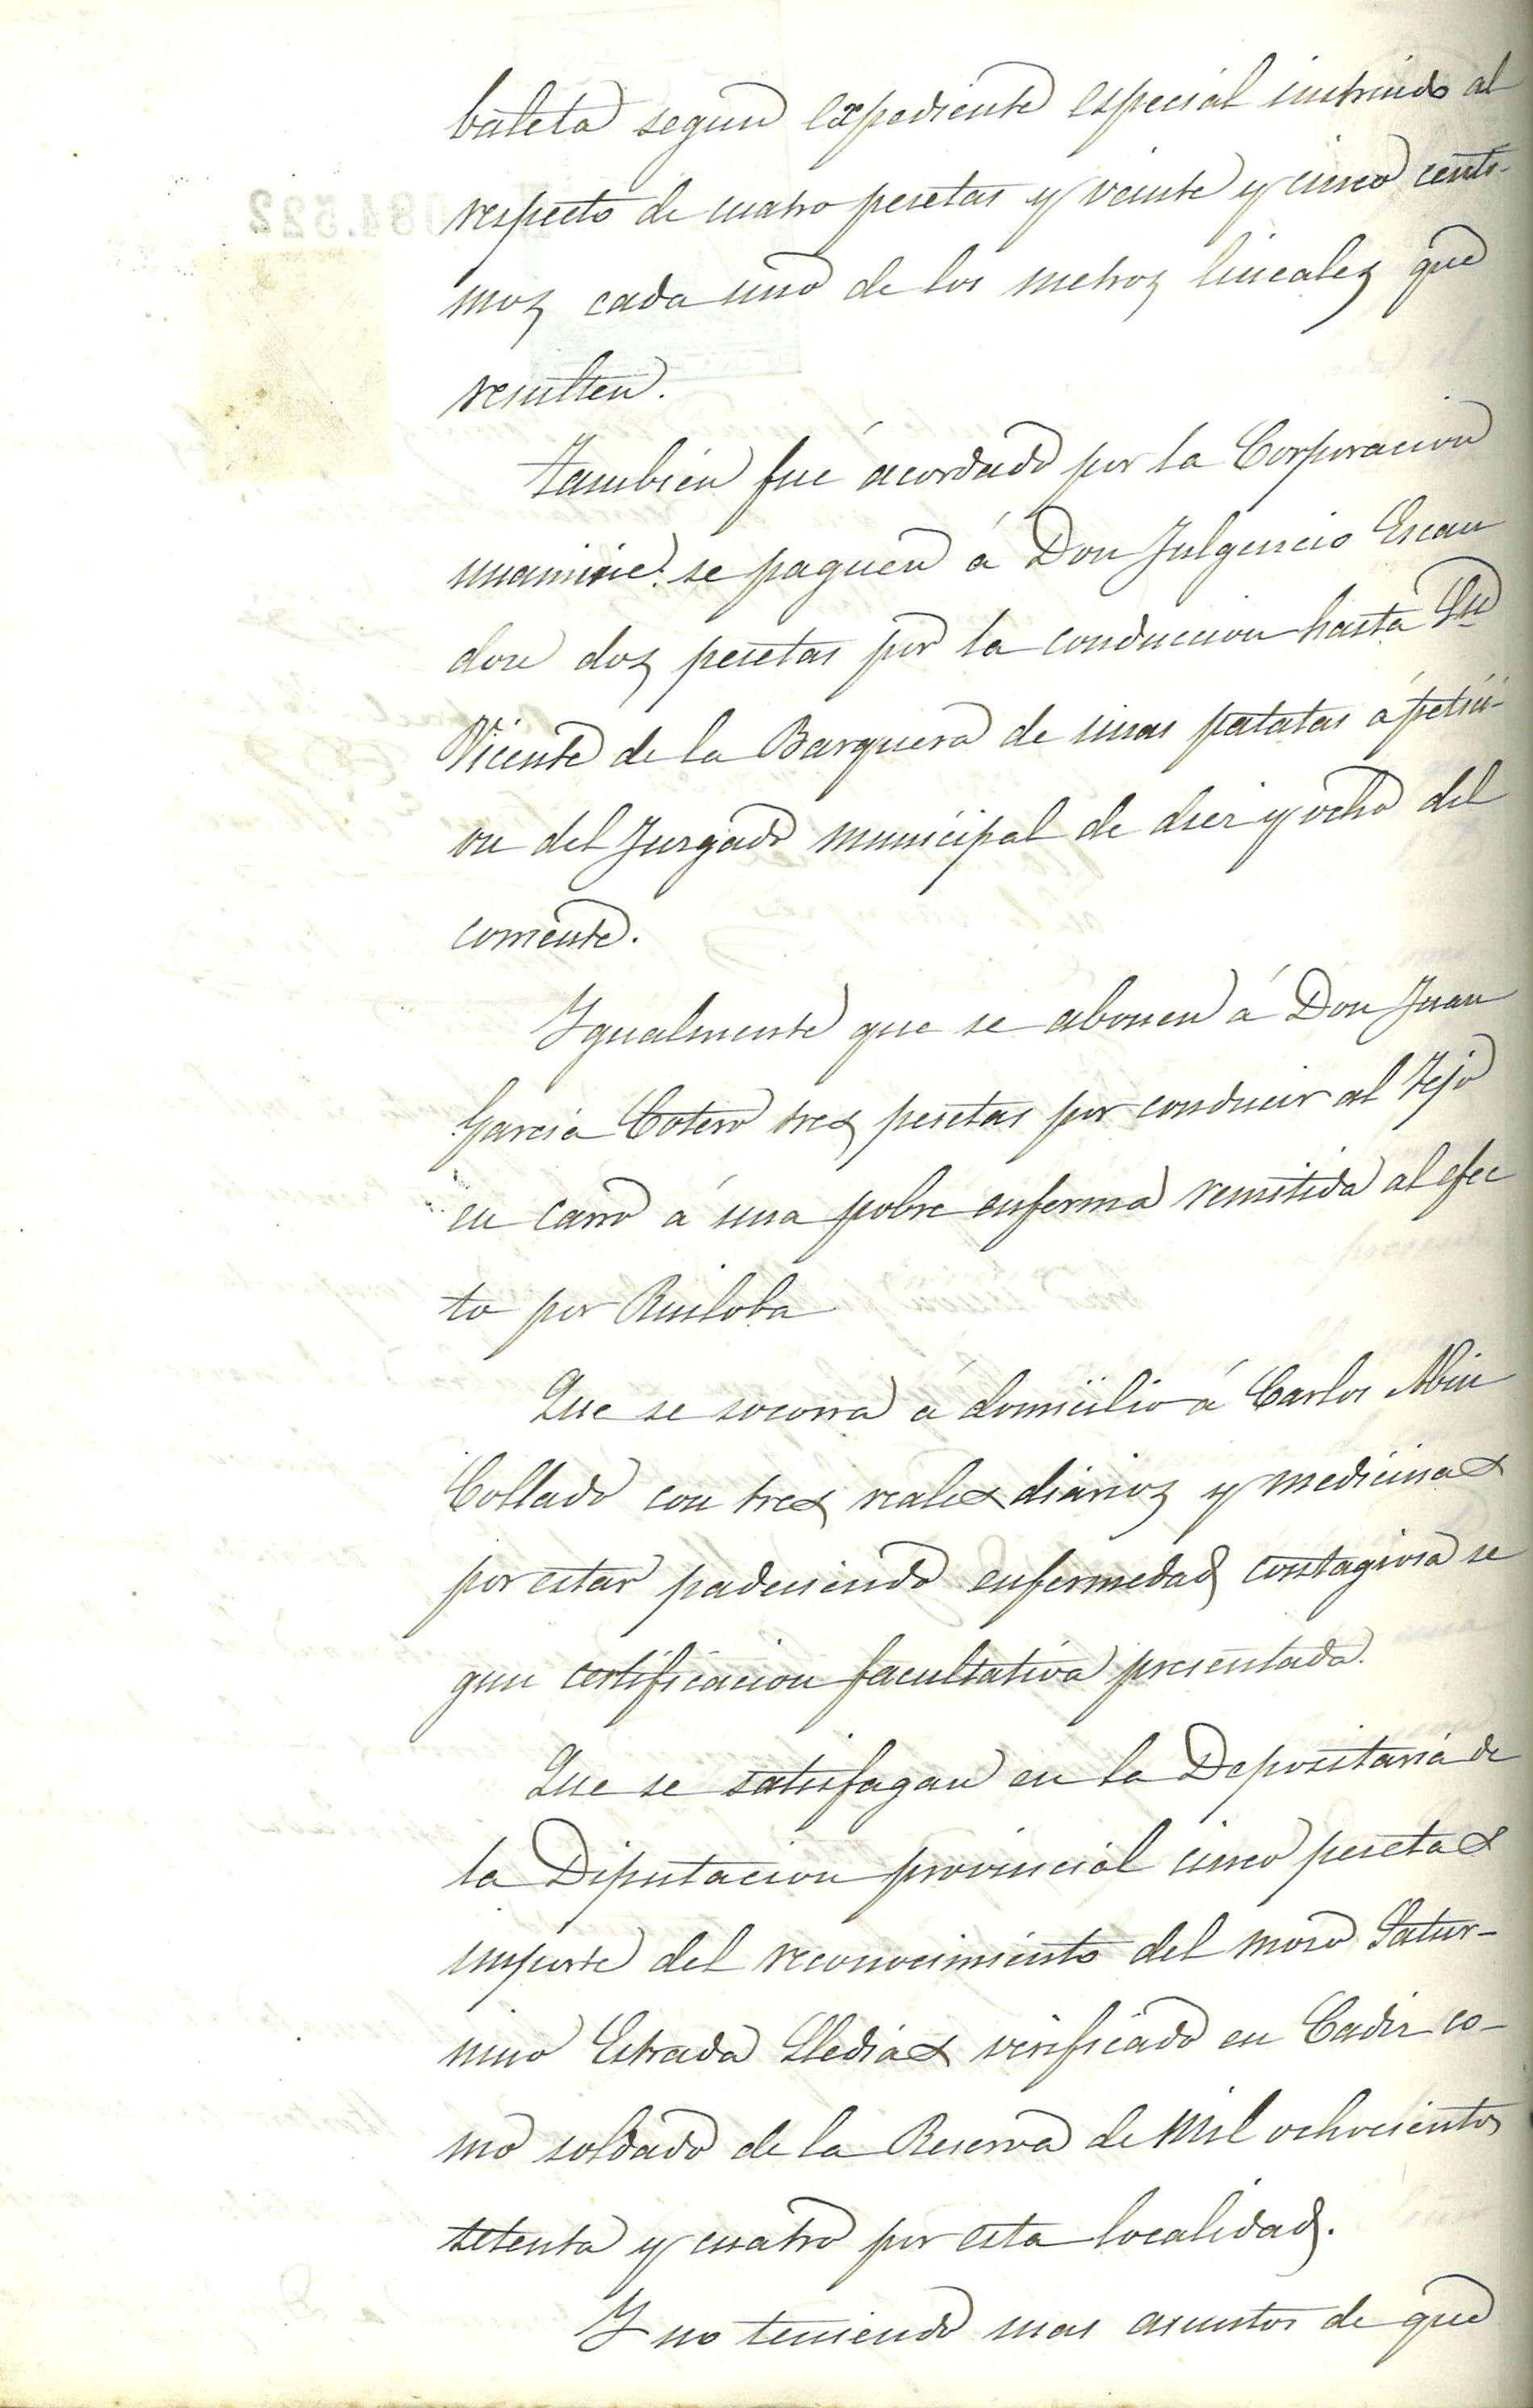 baleta segun expediente especial instruido al
respecto de cuatro pesetas y veinte y cinco centi-
mos cada uno de los metros lineales que
resulten.
Tambien fué acordado por la Corporacion
unanime se paguen á Don Fulgencio Escan
don dos pesetas por la conduccion hasta Sn
Vicente de la Barquera de unas patatas á petici-
on del Juzgado municipal de diez y ocho del
corriente.
Ygualmente que se abonen á Don Juan
Garcia Cotero tres pesetas por conducir al Tejo
en carro á una pobre enferma remitida al efec
to por Ruiloba
Que se socorra á domicilio á Carlos Abin
Collado con tres reales diarios y medicinas
por estar padeciendo enfermedad contagiosa se
gun certificacion facultativa presentada.
Que se satisfagan en la Depositaria de
la Diputacion provincial cinco pesetas
importe del reconocimiento del mozo Satur-
nino Estrada Lledias verificado en Cadiz co-
mo soldado de la Reserva de mil ochocientos
setenta y cuatro por esta localidad.
Y no teniendo mas asuntos de que